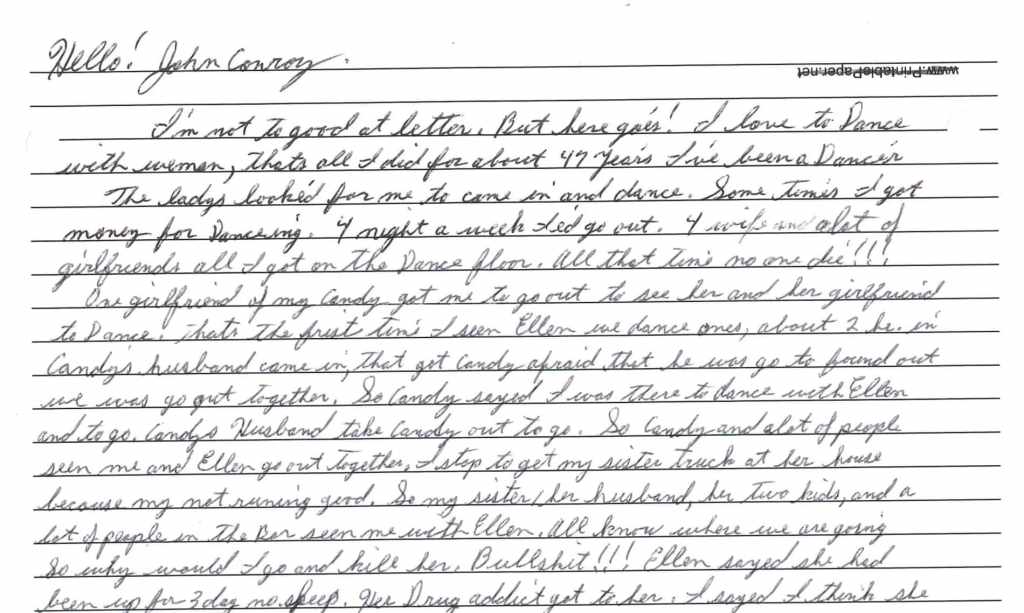 Hello! John Conroy.
www.PrintablePaper.net
I'm not to good at letter. But here goes! I love to Dance
with woman, thats all I did for about 47 years I've been a Dancer
The ladys looked for me to come in and dance. Some times I got
money for Danceing. 4 night a week I'ed go out. 4 wife and alot of
girlfriends all I got on the Dance floor. All that time no one die!!!
One girlfriend of my Candy got me to go out to see her and her girlfriend
to Dance. thats the frist time I seen Ellen we dance ones, about 2 hr. in
Candy's husband came in, that got Candy afraid that he was go to found out
we was go out together. So Candy sayed I was there to dance with Ellen
and to go. Candys Husband take Candy out to go. So Candy and alot of people
seen me and Ellen go out together. I stop to get my sister truck at her house
because my not runing good. So my sister, her husband, her two kids, and a
lot of people in the Bar seen me with Ellen. All know where we are going
So why would I go and kill her. Bullshit!!! Ellen sayed she had
been up for 3 day no sleep. Her Drug addict got to her. I sayed I think she